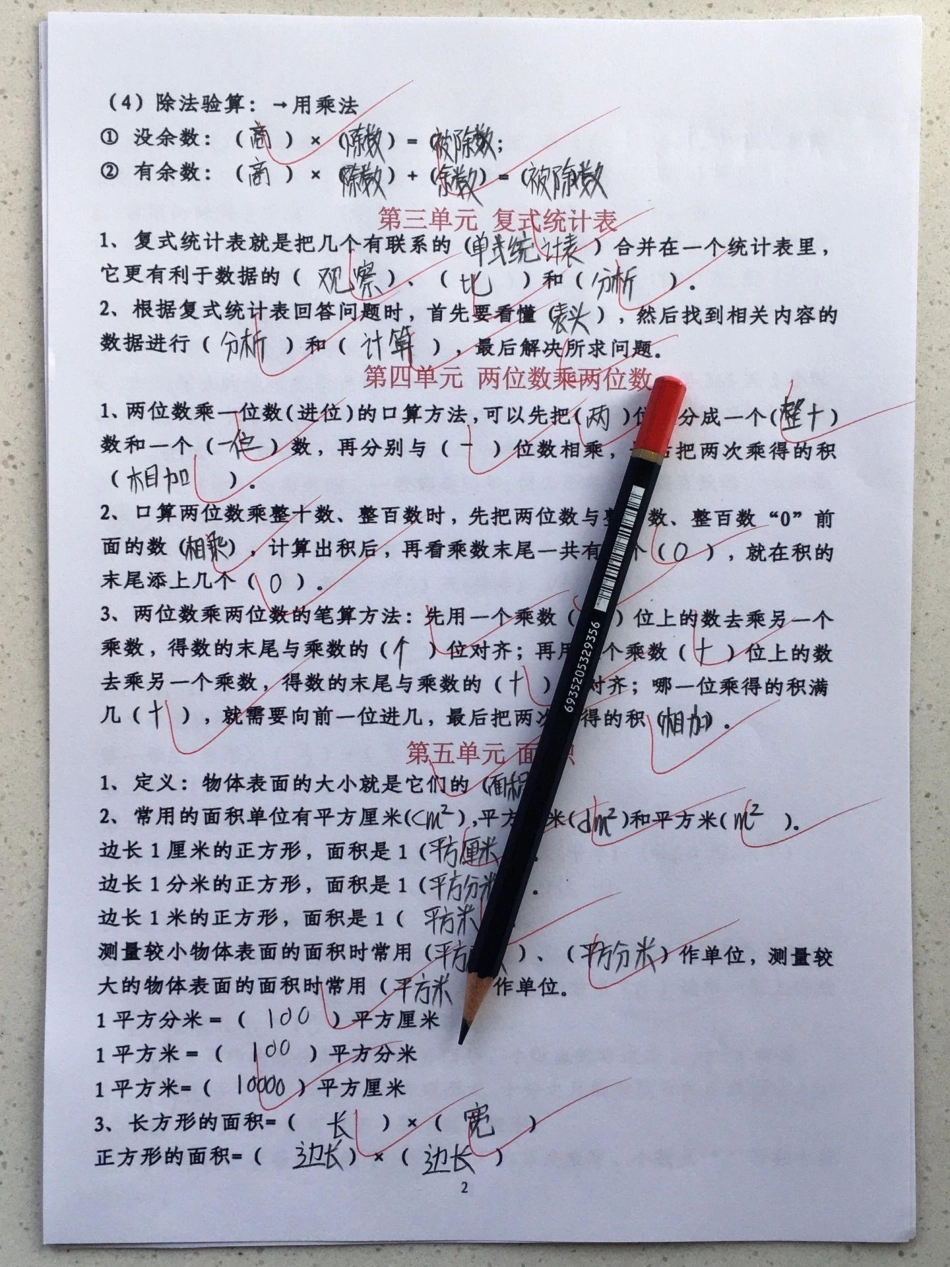 （4）除法验算：→用乘法
① 没余数：（商）×（除数）=（被除数；
② 有余数：（商）×（除数）+（余数）=（被除数
第三单元 复式统计表
1、复式统计表就是把几个有联系的（单式统计表）合并在一个统计表里，
它更有利于数据的（观察）、（比）和（分析）。
2、根据复式统计表回答问题时，首先要看懂（表头），然后找到相关内容的
数据进行（分析）和（计算），最后解决所求问题。
第四单元 两位数乘两位数
1、两位数乘一位数(进位)的口算方法，可以先把(两)位 分成一个(整十)
数和一个（一位）数，再分别与（一）位数相乘， 后把两次乘得的积
（相加）。
2、口算两位数乘整十数、整百数时，先把两位数与 数、整百数“0”前
面的数（相乘），计算出积后，再看乘数末尾一共有 个（0），就在积的
末尾添上几个（0）。
3、两位数乘两位数的笔算方法：先用一个乘数（ ）位上的数去乘另一个
乘数，得数的末尾与乘数的（个）位对齐；再用 个乘数（十）位上的数
去乘另一个乘数，得数的末尾与乘数的（十） 对齐；哪一位乘得的积满
几（十），就需要向前一位进几，最后把两次 得的积（相加）。
第五单元 面积
1、定义：物体表面的大小就是它们的（面积
2、常用的面积单位有平方厘米(cm²),平方 米(dm²)和平方米(m²)。
边长1厘米的正方形，面积是1（平方厘米 .
边长1分米的正方形，面积是1（平方分米 .
边长1米的正方形，面积是1（平方米
测量较小物体表面的面积时常用（平方 ）、（平方分米）作单位，测量较
大的物体表面的面积时常用（平方米 作单位。
1平方分米=（100）平方厘米
1平方米=（100）平方分米
1平方米=（10000）平方厘米
3、长方形的面积=（长）×（宽）
正方形的面积=（边长）×（边长）
2
6935205329356